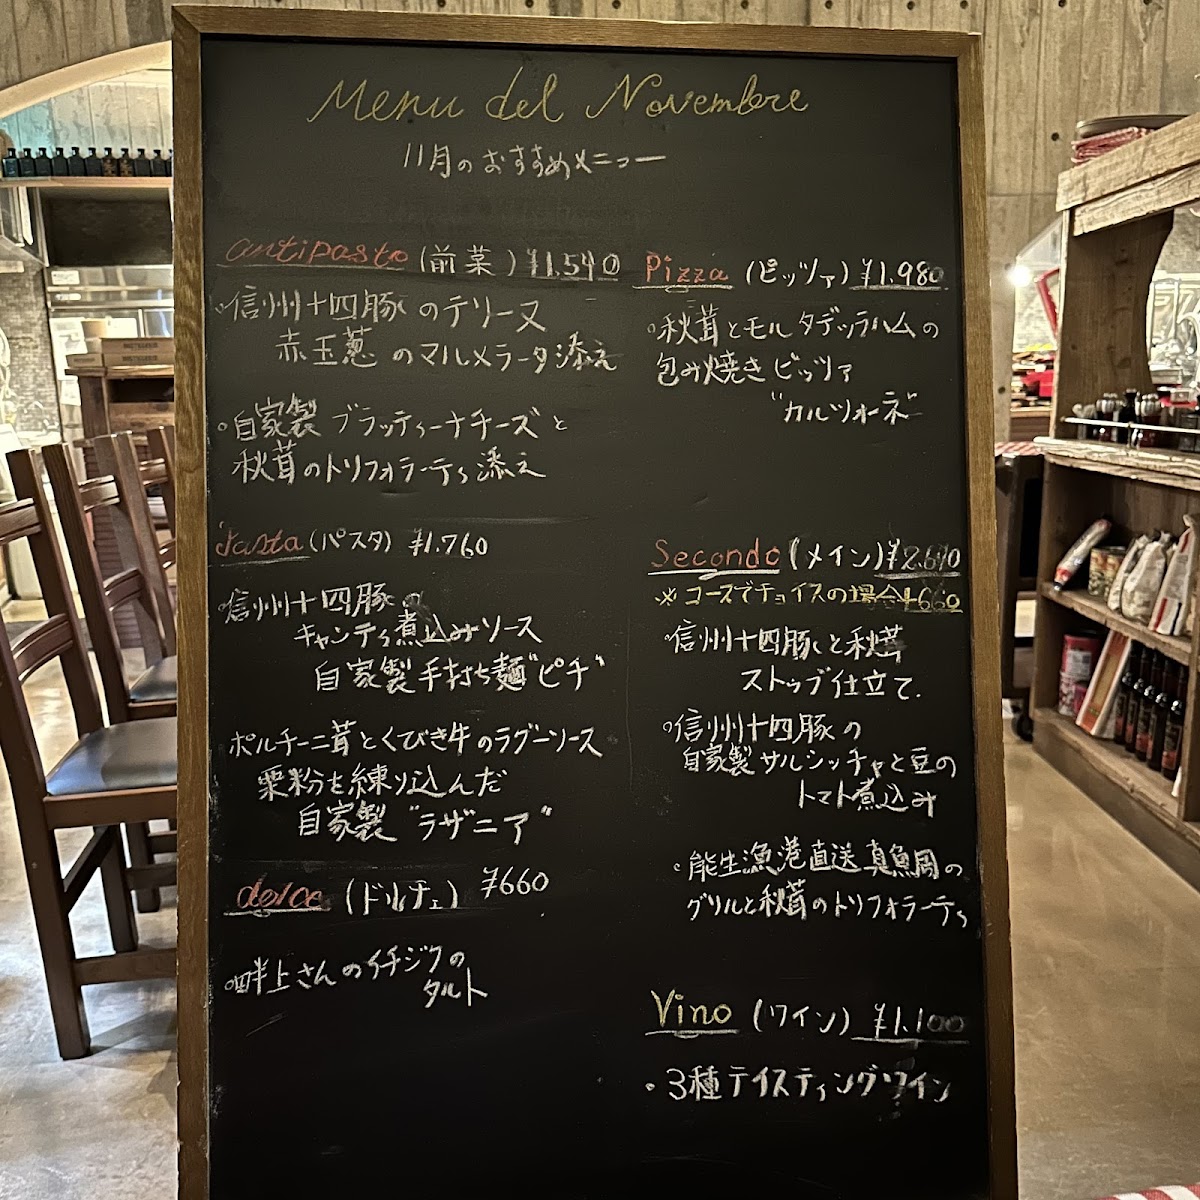 Menu del Novembre
11月のおすすめメニュー
antipasto (前菜) ¥1.540
・信州十四豚のテリーヌ
赤玉葱のマルメラータ添え
・自家製ブラッティーナチーズと
秋茸のトリフォラーティ添え
Pasta (パスタ) ¥1.760
・信州十四豚の
キャンティ煮込みソース
自家製手打ち麺"ピチ"
ポルチーニ茸とくびき牛のラグーソース
栗粉を練り込んだ
自家製"ラザニア"
dolce (ドルチェ) ¥660
・畔上さんのイチジクの
タルト
Pizza (ピッツァ) ¥1.980
・秋茸とモルタデッラハムの
包み焼きピッツァ
"カルツォーネ"
Secondo (メイン)
※コースでチョイスの場合+660
・信州十四豚と秋茸
ストゥブ仕立て.
・信州十四豚の
自家製サルシッチャと豆の
トマト煮込み
・能生漁港直送 真魚岡の
グリルと秋茸のトリフォラーティ
Vino (ワイン) ¥1.100
・3種テイスティングワイン